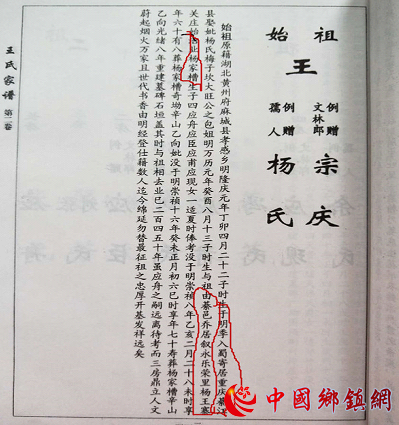 始祖
王宗慶
文林郎
例贈
孺人
例贈
楊氏
始祖原籍湖北黄州府麻城县孝感乡明隆庆元年丁卯四月二十二子时生于明季入蜀寄居重庆綦江
县娶妣杨氏梅子坎大旺公之包姐明万历元年癸酉八月十三子时生与祖由綦邑乔居叙永乐荣里杨王寨
关庄始插业杨家槽生子四应舟应臣应甫应现女一适夏时俸考没于明崇祯八年乙亥二月二十八未时享
年六十有八葬杨家槽奇坳辛山乙向妣没于明崇祯十六年癸未正月初六巳时享年七十寿葬杨家槽辛山
乙向光绪八年重建墓碑石垣盖其时与祖相去业已二百四五十年虽应舟之嗣远离待考而三房鼎立人文
蔚起烟火万家且世代书香由明经登仕籍数人迄今绵延勿替最征祖之忠厚开基发祥远矣
王氏家谱
第二卷
中國鄉鎮網